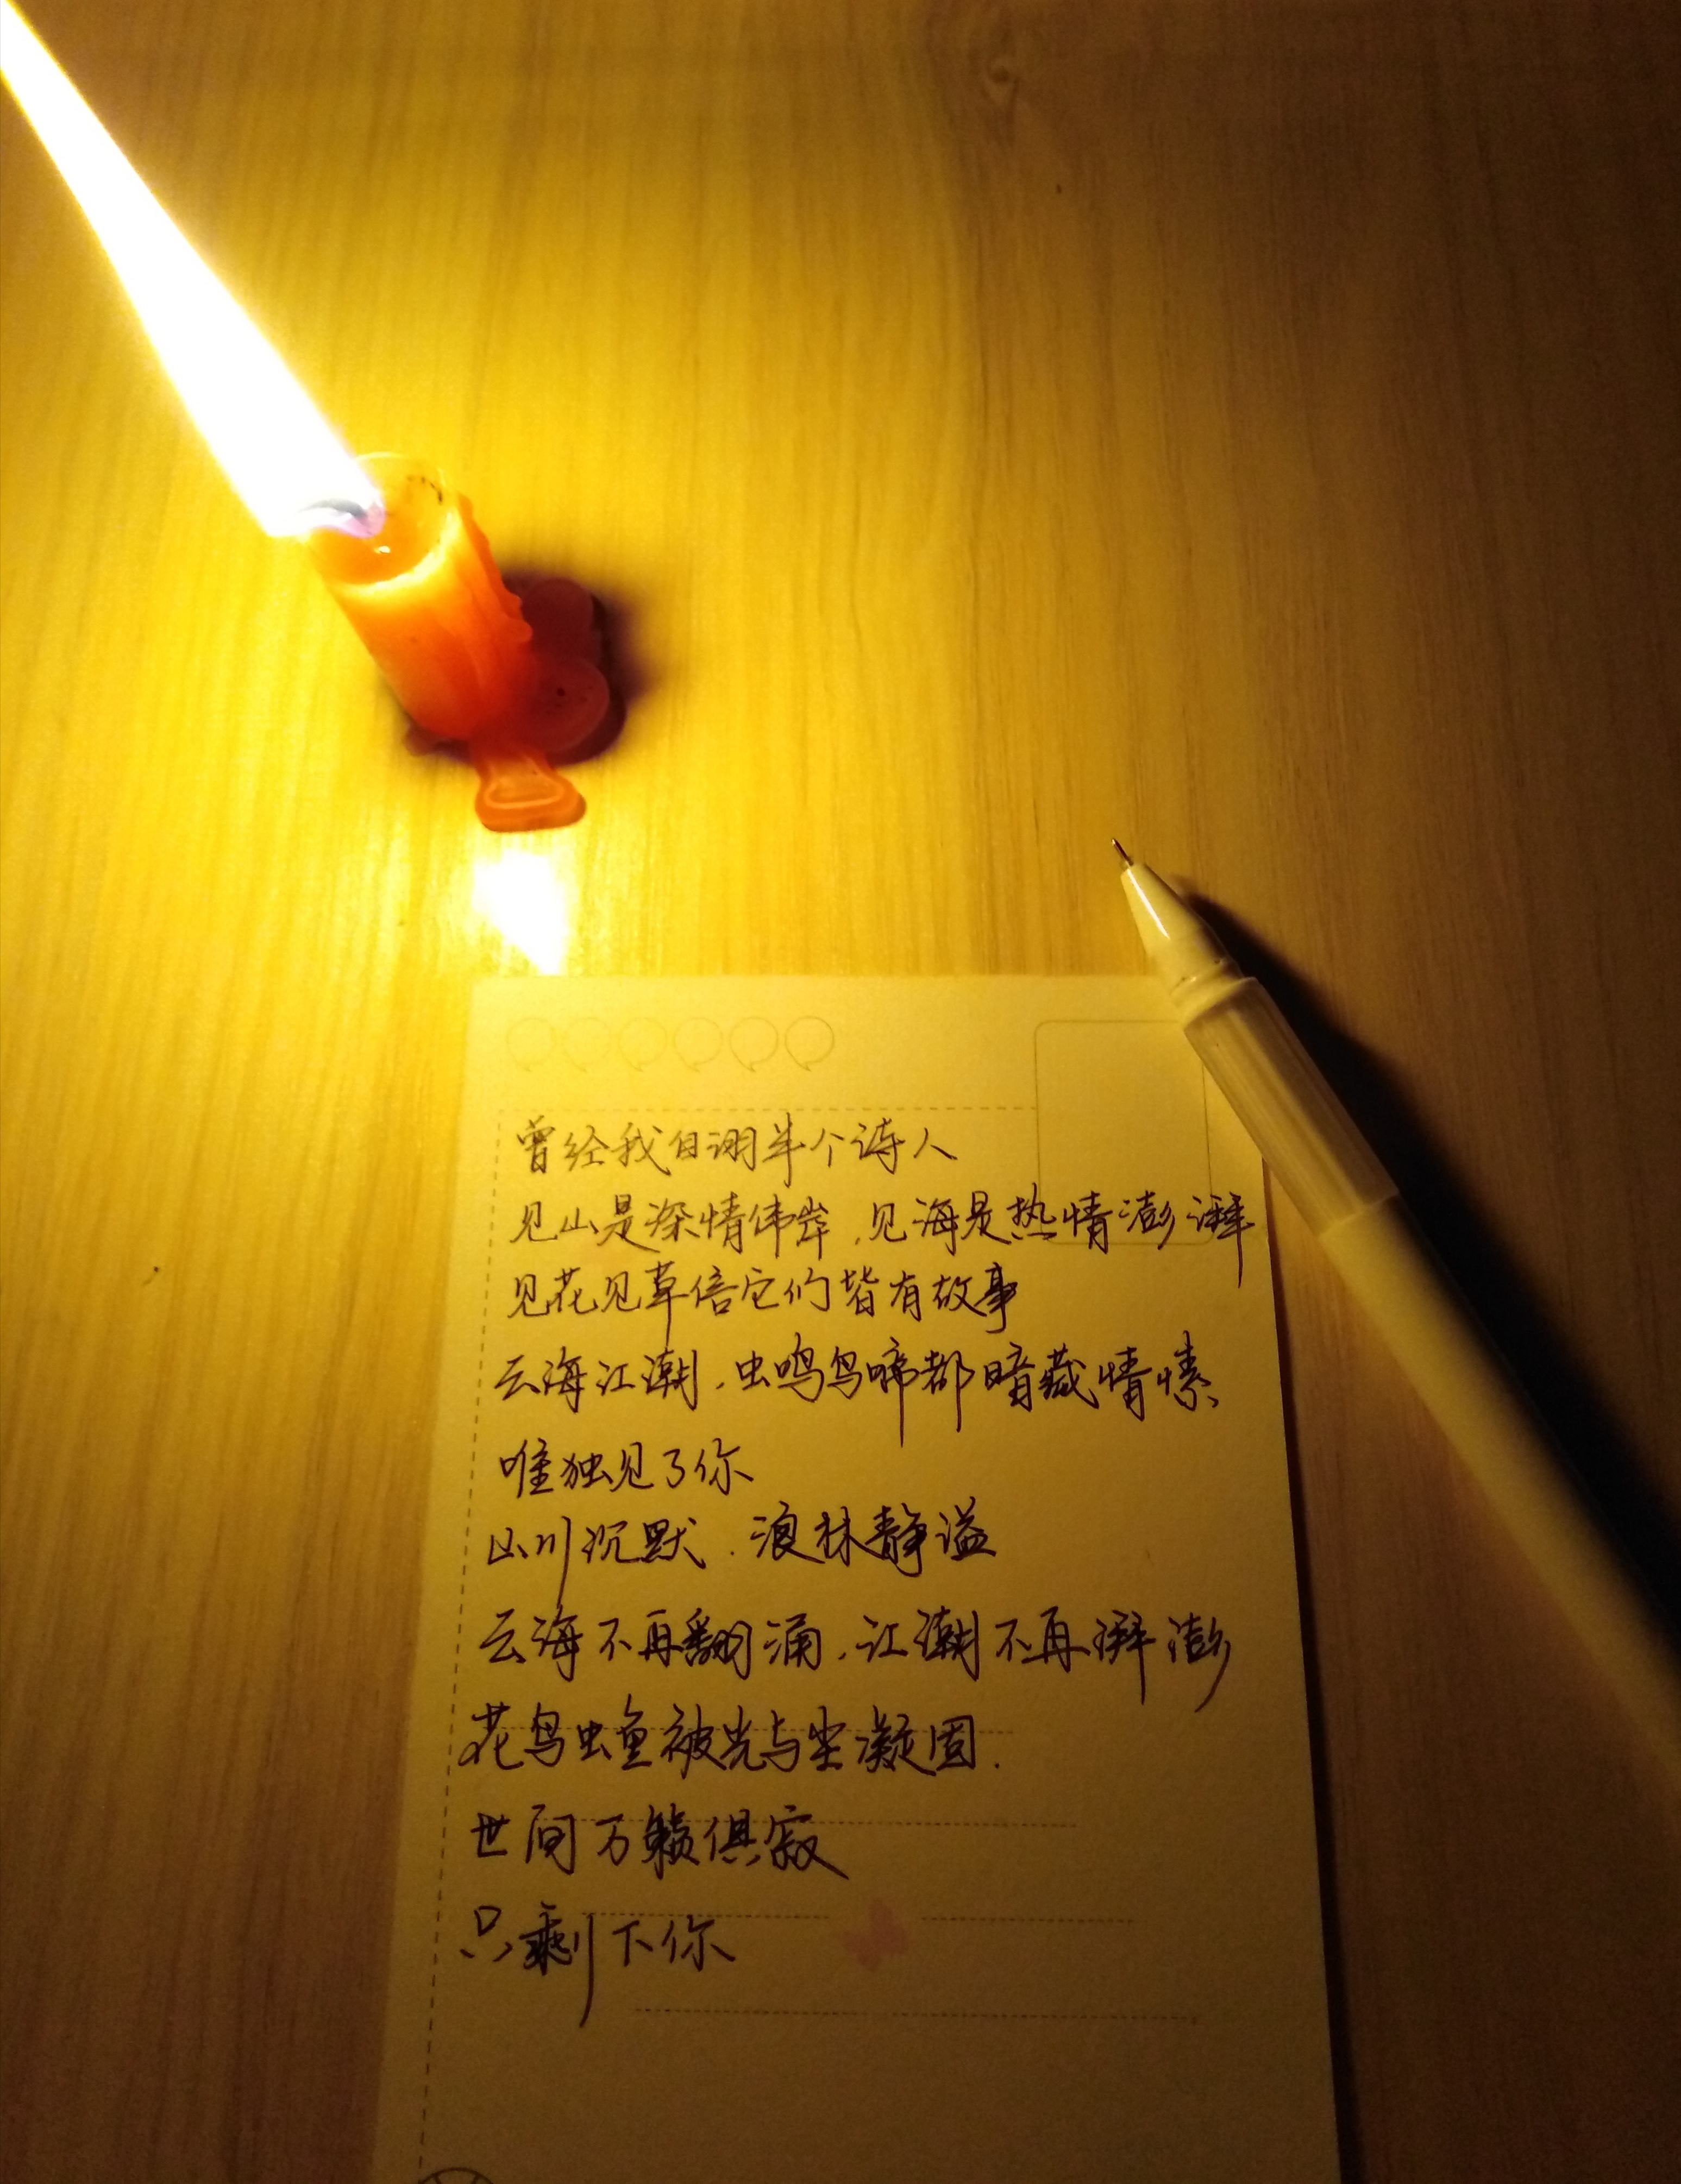 曾经我自诩半个诗人
见山是深情伟岸,见海是热情澎湃
见花见草信它们皆有故事
云海江潮,虫鸣鸟啼都暗藏情愫
唯独见了你
山川沉默.浪林静谧
云海不再翻涌,江潮不再湃澎
花鸟虫鱼被光与尘凝固.
世间万籁俱寂
只剩下你